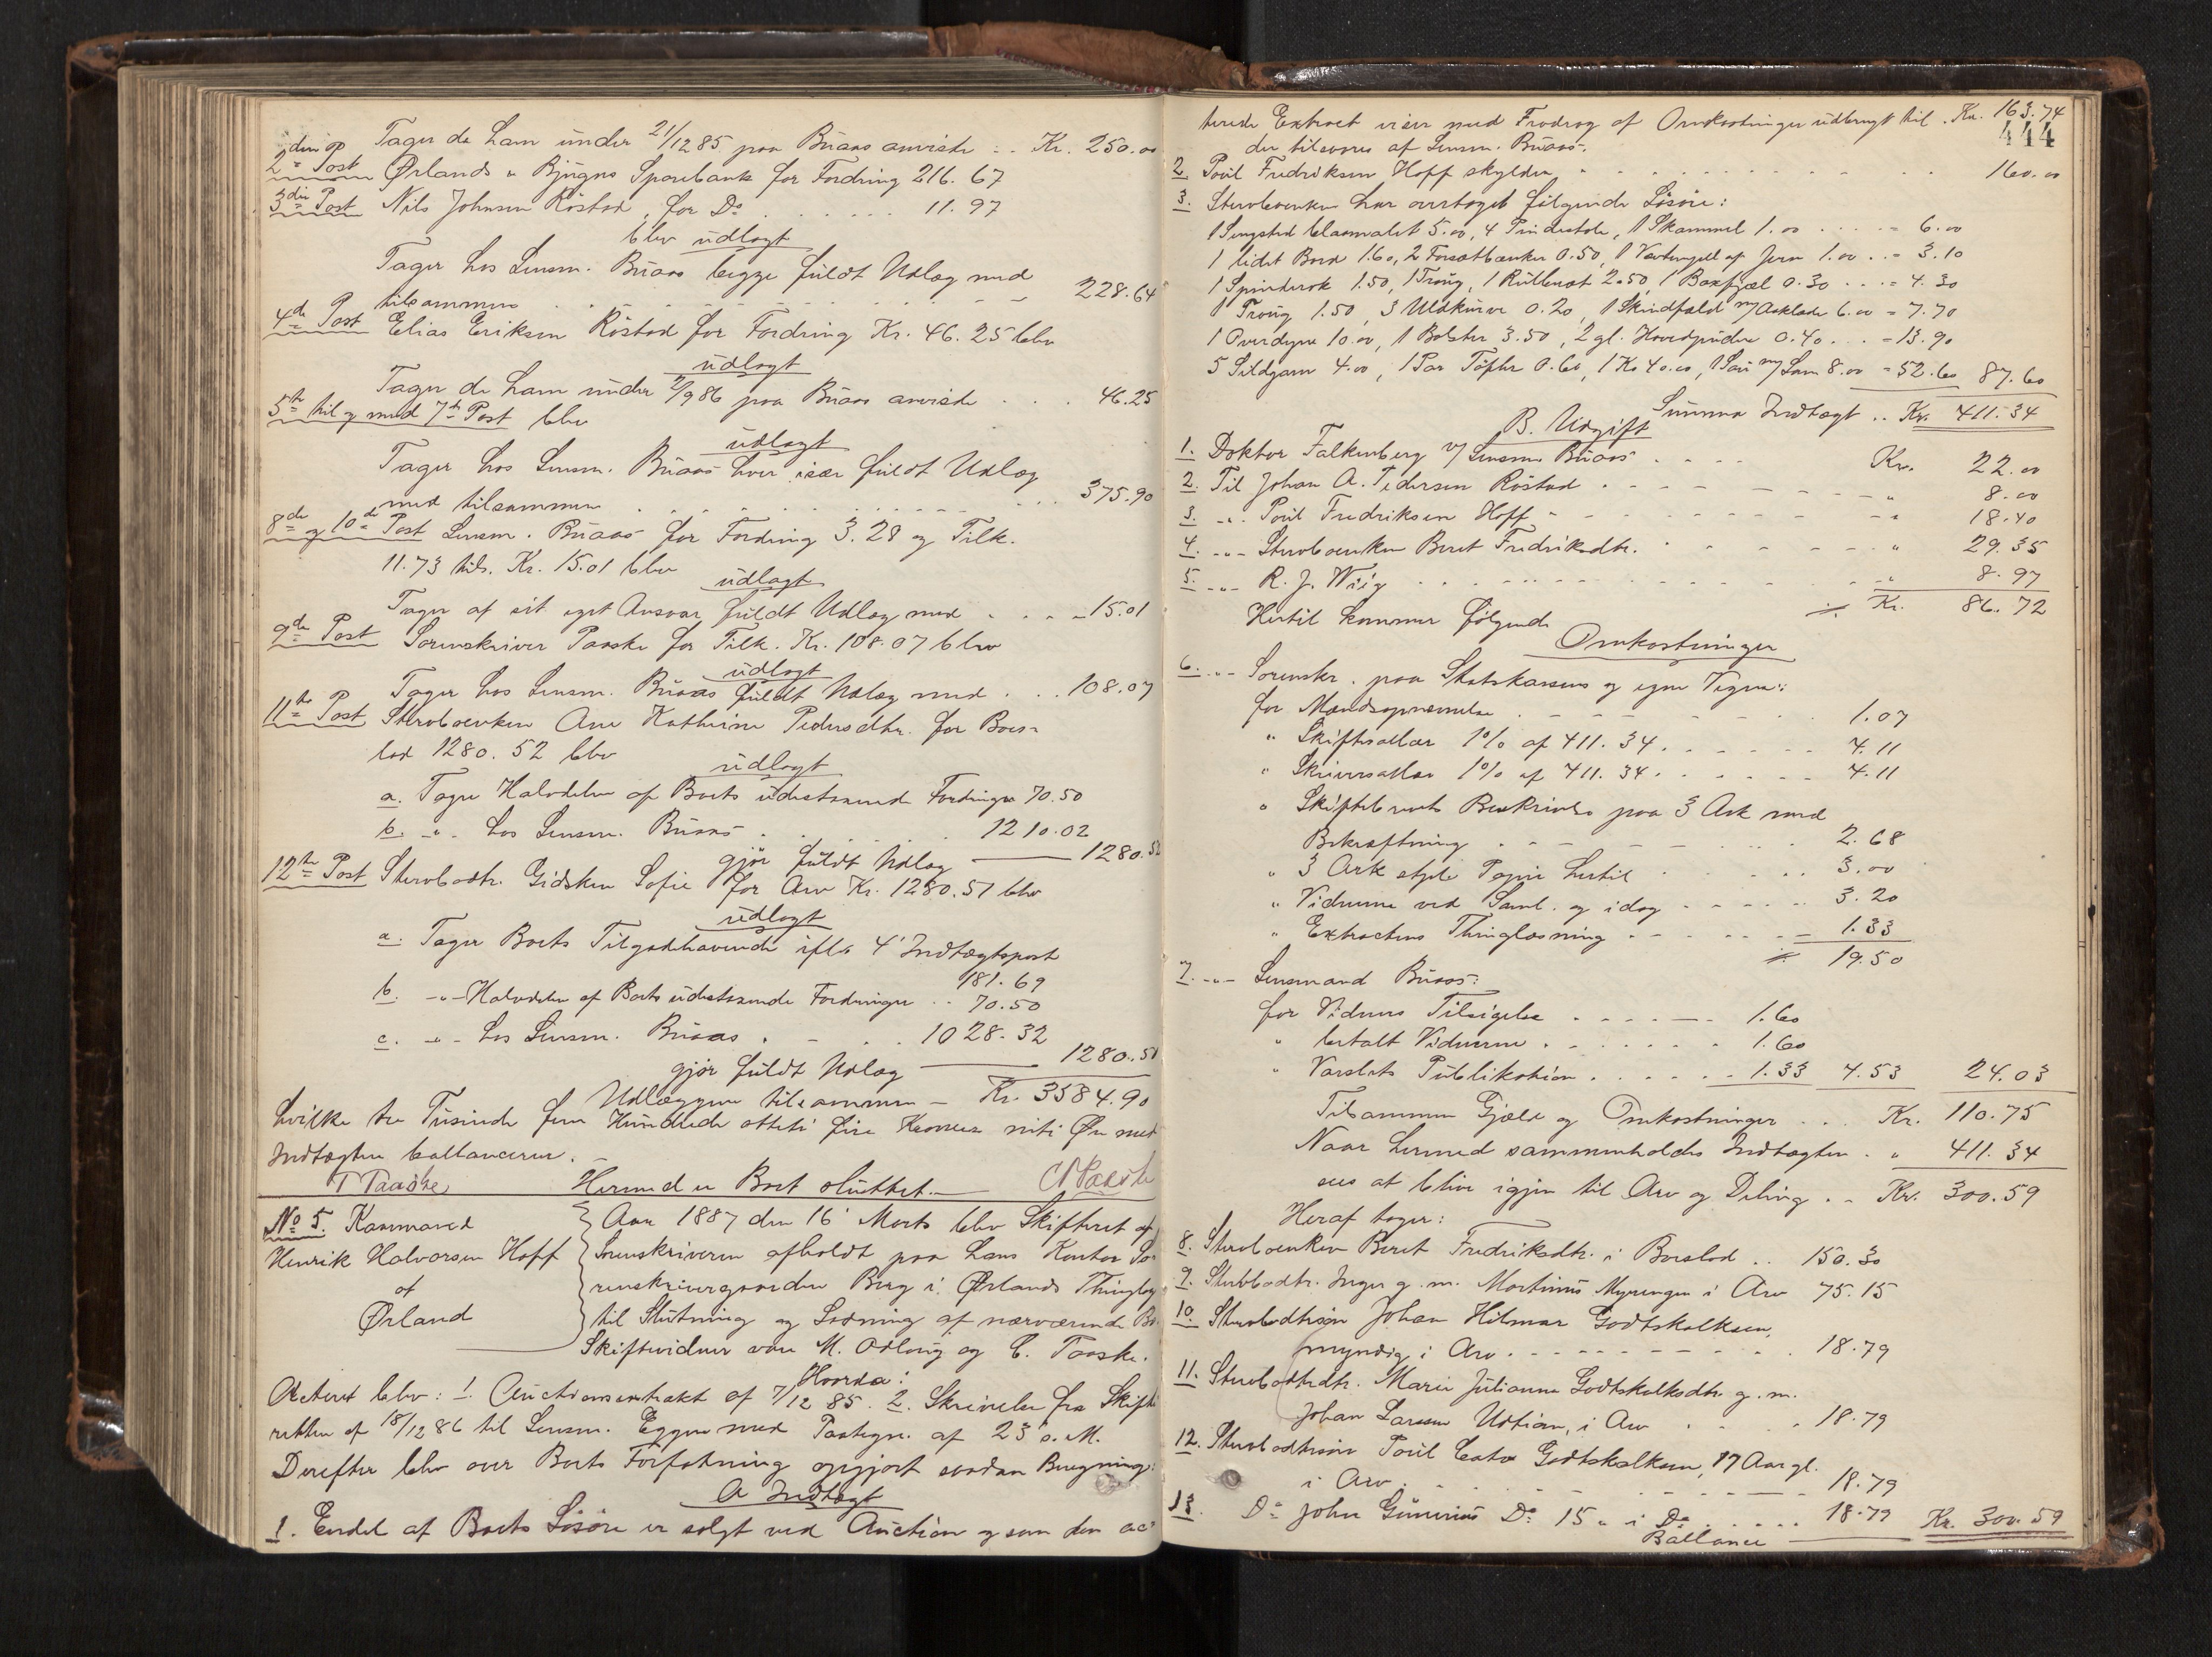 Tager de ham under 21/12 85 paa Buaas anviste .. Kr. 250.00
2den Post Ørlands & Bjugns Sparebank for Fordring 216.67
3die Post Nils Johnsen Röstad, for Do ....... 11.97
blev udlagt
Tager hos Lensm. Buaas begge fuldt Udlæg med
tilsammen ........ 228.64
4de Post Elias Eriksen Röstad for Fordring Kr. 46.25 blev
udlagt
Tager de ham under 2/9 86 paa Buaas anviste ... 46.25
5te til og med 7de Post blev
udlagt
Tager hos Lensm. Buaas hver især fuldt Udlæg
med tilsammen ........ 375.90
8de og 10de Post Lensm. Buaas for Fordring 3.28 og Tilk.
11.73 tils. Kr. 15.01 blev
udlagt
Tager af sit eget Ansvar fuldt Udlæg med .... 15.01
9de Post Sorenskriver Paaske for Tilk. Kr. 108.07 blev
udlagt
Tager hos Lensm. Buaas fuldt Udlæg med ... 108.07
11te Post Stervboenken Ane Kathrine Pedersdtr. for Boes-
lod 1280.52 blev
udlagt
a. Tager Halvdelen af Boets udestaaende Fordringer 70.50
b. -"- hos Lensm. Buaas . . . 1210.02
gjør fuldt Udlæg 1280.52
12te Post Stervbodtr. Gidsken Sofie for Arv Kr. 1280.51 blev
udlagt
a. Tager Boets Tilgodehavende iflg 4' Indtægtspost
181.69
b. -"- Halvdelen af Boets udestaaende Fordringer .. 70.50
c. -"- hos Lensm. Buaas . - . . 1028.32
gjør fuldt Udlæg 1280.51
Udlæggene tilsammen - Kr. 3584.90
hvilke tre Tusinde fem Hundrede otteti fire Kroner niti Øre med
Indtægten ballancerer.
Hermed er Boet sluttet.
T Paaske C Paaske
No 5. Kaarmand
Henrik Halvorsen Hoff
af
Ørland
Aar 1887 den 16' Marts blev Skifteret af
Sorenskriveren afholdt paa hans Kontor So-
renskrivergaarden Berg i Ørlands Thinglag
til Slutning og Lodning af nærværende Bo
Skiftevidner vare M. Ødlung og C. Paaske.
Hvorda:
Acteret blev: 1. Auctionsextrakt af 7/12 85. 2. Skrivelse fra Skifte
retten af 18/12 86 til Lensm. Eggen med Paategn. af 23 s. M.
Derefter blev over Boets Forfatning opgjort saadan Beregning:
A Indtægt
1. Endel af Boets Løsøre er solgt ved Auction og som den ac-
444
terede Extract viser med Fradrag af Omkostninger udbragt til . Kr. 163.74
der tilsvares af Lensm. Buaas.
2. Poul Fredriksen Hoff skylder 160.00
3. Stervboenken har overtaget følgende Løsøre:
1 Sengsted blaamalet 5.00, 4 Pindestole, 1 Skammel 1.00 .... = 6.00
1 lidet Bord 1.60, 2 Forsætbænke 0.50, 1 af Jern 1.00 .. = 3.10
1 Spinderok 1.50, 1 Troug, 1 2.50, 1 Baxfjæl 0.30 ... = 4.30
1 Troug 1.50, 3 Uldkurve 0.20, 1 Skindfæld m/ Aaklæde 6.00 = 7.70
1 Overdyne 10.00, 1 Bolster 3.50, 2 gl. Hovedpuder 0.40 ... = 13.90
5 Sildgarn 4.00, 1 Par Töfler 0.60, 1 Ko 40.00, 1 Sau m/ Lam 8.00 = 52.60 87.60
Summa Indtægt .. Kr. 411.34
B. Udgift
1. Doktor Falkenberg v/ Lensm. Buaas .... Kr. 22.00
2. Til Johan A. Pedersen Röstad . - - - - - " 8.00
3. -"- Poul Fredriksen Hoff - - - - - - " 18.40
4. -"- Stervboenken Beret Fredriksdtr. . - - - " 29.35
5. -"- R. J. Wiig . . - - - - - - - " 8.97
÷ Kr. 86.72
Hertil kommer følgende
Omkostninger
6. -"- Sorenskr. paa Statskassens og egne Vegne:
for Mandsopnævnelse . - - - - 1.07
" Skiftesallær 1% af 411.34 . . - - - 4.11
" Skriversallær 1% af 411.34 . . . - - 4.11
" Skiftebrevets Beskrivelse paa 3 Ark med
Bekræftning . - - - - . . 2.68
" 3 Ark stplt Papir hertil . . . . 3.00
" Vidnerne ved Saml. og idag - - - - 3.20
" Extractens Thinglæsning . - - - - 1.33
÷ 19.50
7. -"- Lensmand Buaas:
for Vidners Tilsigelse . . . - - 1.60
" betalt Vidnerne . . . . . . 1.60
" Varslets Publikation . . . . . 1.33 4.53 24.03
Tilsammen Gjæld og Omkostninger ... Kr. 110.75
Naar hermed sammenholdes Indtægten . " 411.34
sees at blive igjen til Arv og Deling .. Kr. 300.59
Heraf tager:
8. Stervboenken Beret Fredriksdtr. i Boeslod .. 150.30
9. Stervbodtr. Inger g. m. Martinus Myrengen i Arv 75.15
10. Stervbodtrsön Johan Hilmar Godtskalksen,
myndig i Arv . - - - - - - . 18.79
11. Stervbodtrdtr. Marie Julianna Godtskalksdtr g. m.
Johan Larssen Udtian, i Arv . . . 18.79
12. Stervbodtrsön Poul Godtskalksen, 17 Aar gl.
i Arv . . . - - - - 18.79
13. Do John Gunerius Do 15 " i Do ..... 18.79 Kr. 300.59
Ballance